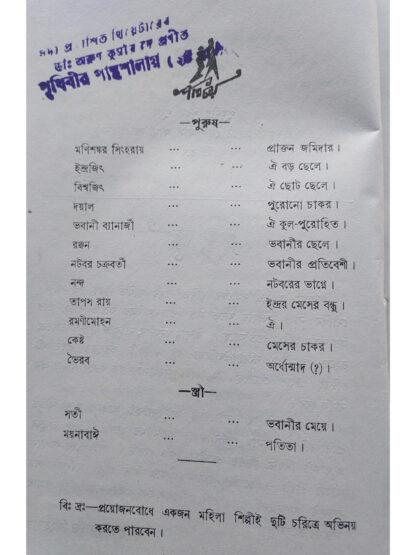 সদ্য প্রকাশিত থিয়েটারের
ডাঃ অরুণ কুমার দে প্রণীত
পৃথিবীর পান্থশালায়
পরিচয়
—পুরুষ—
মণিশঙ্কর সিংহরায় ... ... প্রাক্তন জমিদার।
ইন্দ্রজিৎ ... ... ঐ বড় ছেলে।
বিশ্বজিৎ ... ... ঐ ছোট ছেলে।
দয়াল ... ... পুরোনো চাকর।
ভবানী ব্যানার্জী ... ... ঐ কুল-পুরোহিত।
রঞ্জন ... ... ভবানীর ছেলে।
নটবর চক্রবর্তী ... ... ভবানীর প্রতিবেশী।
নন্দ ... ... নটবরের ভাগ্নে।
তাপস রায় ... ... ইন্দ্রর মেসের বন্ধু।
রমণীমোহন ... ... ঐ।
কেষ্ট ... ... মেসের চাকর।
ভৈরব ... ... অর্ধোন্মাদ (?)।
—স্ত্রী—
সতী ... ... ভবানীর মেয়ে।
ময়নাবাঈ ... ... পতিতা।
বিঃ দ্রঃ—প্রয়োজনবোধে একজন মহিলা শিল্পীই দুটি চরিত্রে অভিনয়
করতে পারবেন।